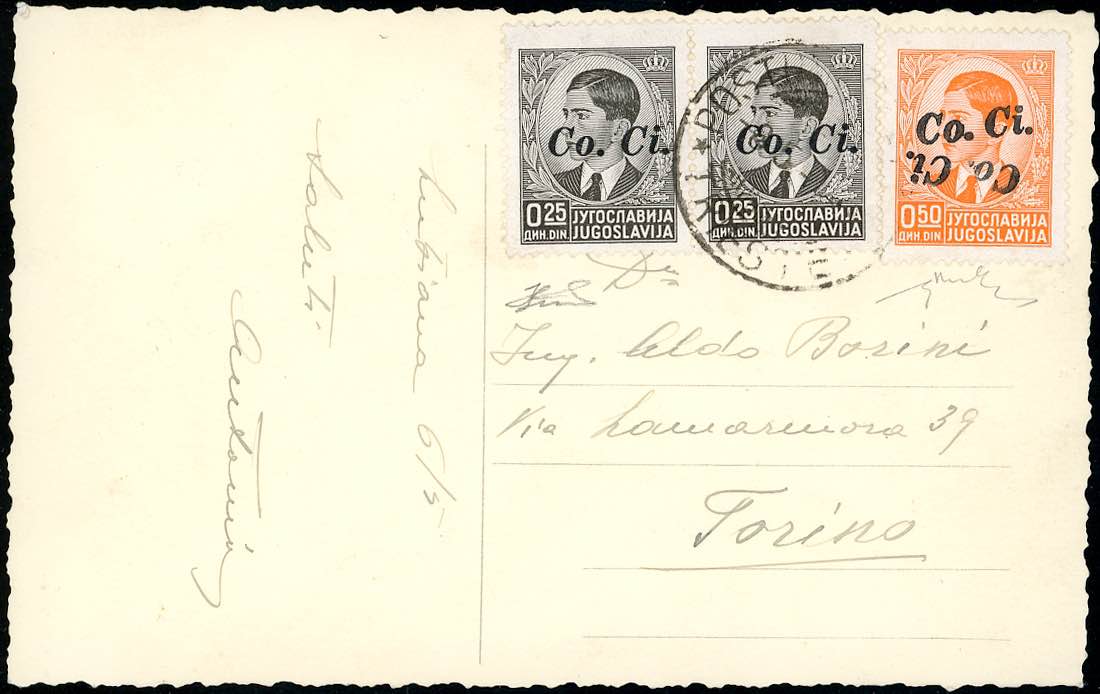 Co. Ci.
0.25 ЈУГОСЛАВИЈА
ДИН. DIN. JUGOSLAVIJA
Co. Ci.
0.25 ЈУГОСЛАВИЈА
ДИН. DIN. JUGOSLAVIJA
Co. Ci.
Co. Ci.
0.50 ЈУГОСЛАВИЈА
ДИН. DIN. JUGOSLAVIJA
Lubiana 6/5
Saluti
Ing. Aldo Borini
Via Lamarmora 39
Torino